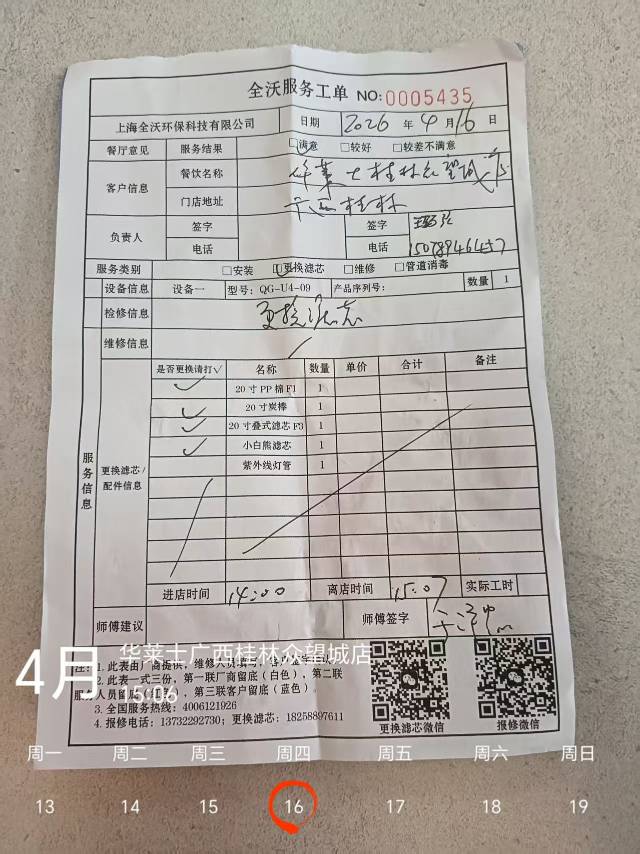 全沃服务工单 NO:0005435
上海全沃环保科技有限公司 日期 2026 年 4 月 16 日
餐厅意见 服务结果 ☑满意 □较好 □较差不满意
客户信息 餐饮名称 华莱士桂林众望城店
门店地址 广西桂林
负责人 签字 签字
电话 电话
服务类别 □安装 ☑更换滤芯 □维修 □管道消毒
设备信息 设备一 型号: QG-U4-09 产品序列号: 数量 1
检修信息 更换滤芯
维修信息
服务信息
更换滤芯/配件信息
是否更换请打√ 名称 数量 单价 合计 备注
✓ 20寸PP棉F1 1
✓ 20寸炭棒 1
✓ 20寸叠式滤芯F3 1
✓ 小白熊滤芯 1
紫外线灯管 1
进店时间 14:00 离店时间 15:07 实际工时
师傅建议 师傅签字
华莱士广西桂林众望城店
4月
注: 1. 此表由厂商提供，维修人员填写，
2. 此表一式三份，第一联厂商留底（白色），第二联
服务人员留底，第三联客户留底（蓝色）。
3. 全国服务热线: 4006121926
4. 报修电话: 13732292730; 更换滤芯: 18258897611
更换滤芯微信 报修微信
周一 周二 周三 周四 周五 周六 周日
13 14 15 16 17 18 19